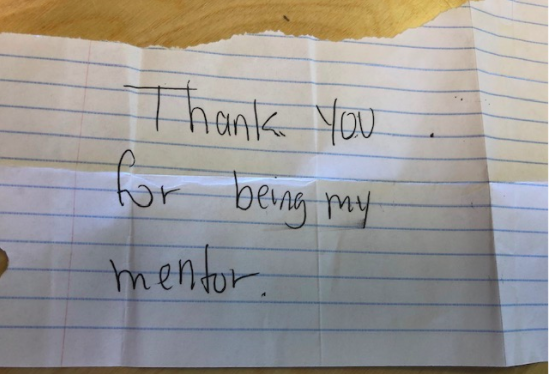 Thank you
for being my
mentor.